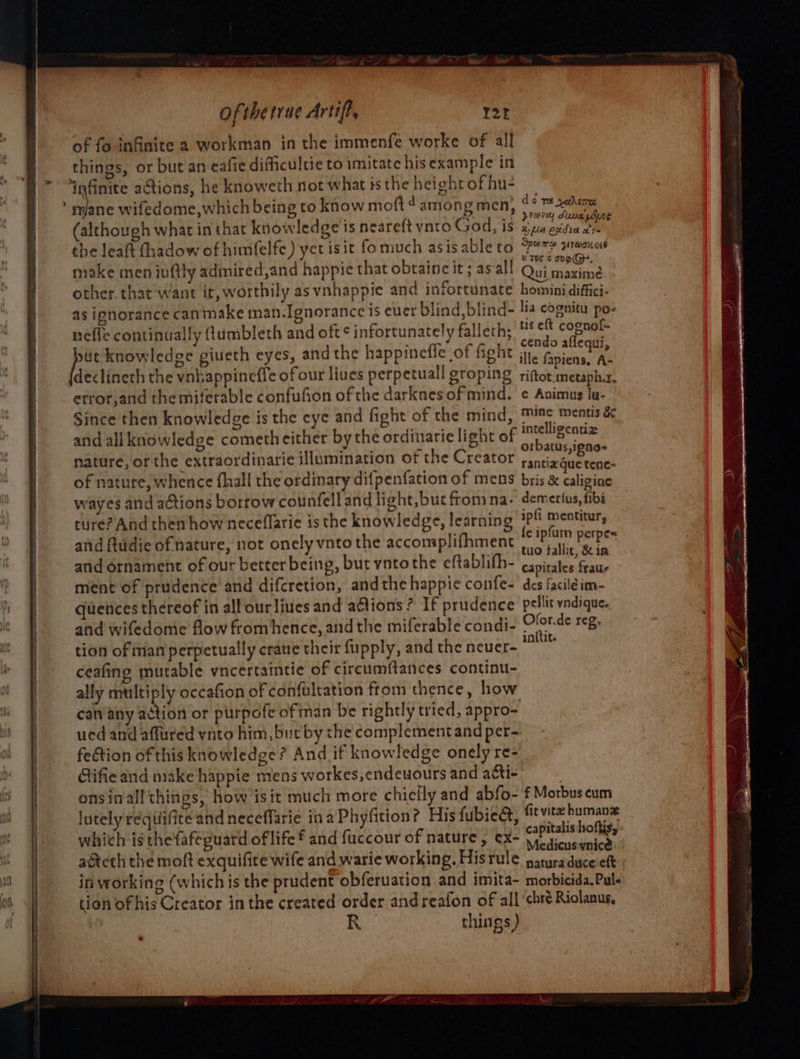 Of the true Artist, 121
of so infinite a workman in the immense worke of all
things, or but an easie difficultie to imitate his example in
infinite actions, he knoweth not what is the height of hu-
mane wisedome, which being to know most d among men,
(although what in that knowledge is nearest vnto God, is
the least shadow of himselfe) yet is it so much as is able to
make men iustly admired, and happie that obtaine it; as all
other that want it, worthily as vnhappie and infortunate
as ignorance can make man. Ignorance is euer blind, blind-
nesse continually stumbleth and oft e infortunately falleth;
but knowledge giueth eyes, and the happinesse of sight
declineth the vnhappinesse of our liues perpetuall groping
error, and the miserable confusion of the darknes of mind.
Since then knowledge is the eye and sight of the mind,
and all knowledge cometh either by the ordinarie light of
nature, or the extraordinarie illumination of the Creator
of nature, whence shall the ordinary dispensation of mens
wayes and actions borrow counsell and light, but from na-
ture? And then how necessarie is the knowledge, learning
and studie of nature, not onely vnto the accomplishment
and ornament of our better being, but vnto the establish-
ment of prudence and discretion, and the happie conse-
quences thereof in all our liues and actions? If prudence
and wisedome flow from hence, and the miserable condi-
tion of man perpetually craue their supply, and the neuer-
ceasing mutable vncertaintie of circumstances continu-
ally multiply occasion of consultation from thence, how
can any action or purpose of man be rightly tried, appro-
ued and assured vnto him, but by the complement and per-
fection of this knowledge? And if knowledge onely re-
ctifie and make happie mens workes, endeuours and acti-
ons in all things, how is it much more chiefly and abso-
lutely requisite and necessarie in a Physition? His subiect,
which is the safeguard of life f and succour of nature, ex-
acteth the most exquisite wise and warie working. His rule
in working (which is the prudent obseruation and imita-
tion of his Creator in the created order and reason of all
R things)
Qui maximè
homini diffici-
lia cognitu po-
tis est cognos-
cendo assequi,
ille sapiens. A-
ristot. metaph. 1.
e Animus lu-
mine mentis &
intelligentiæ
orbatus, igno-
rantiæ que tene-
bris & caligine
demersus, sibi
ipsi mentitur,
se ipsum perpe-
tuo fallit, & in
capitales frau-
des facilè im-
pellit vndique.
Osor. de reg.
instit.
f Morbus cum
sit vitæ humanæ
capitalis hostis,
Medicus vnicè
natura duce est
morbicida. Pul-
chrè Riolanus.